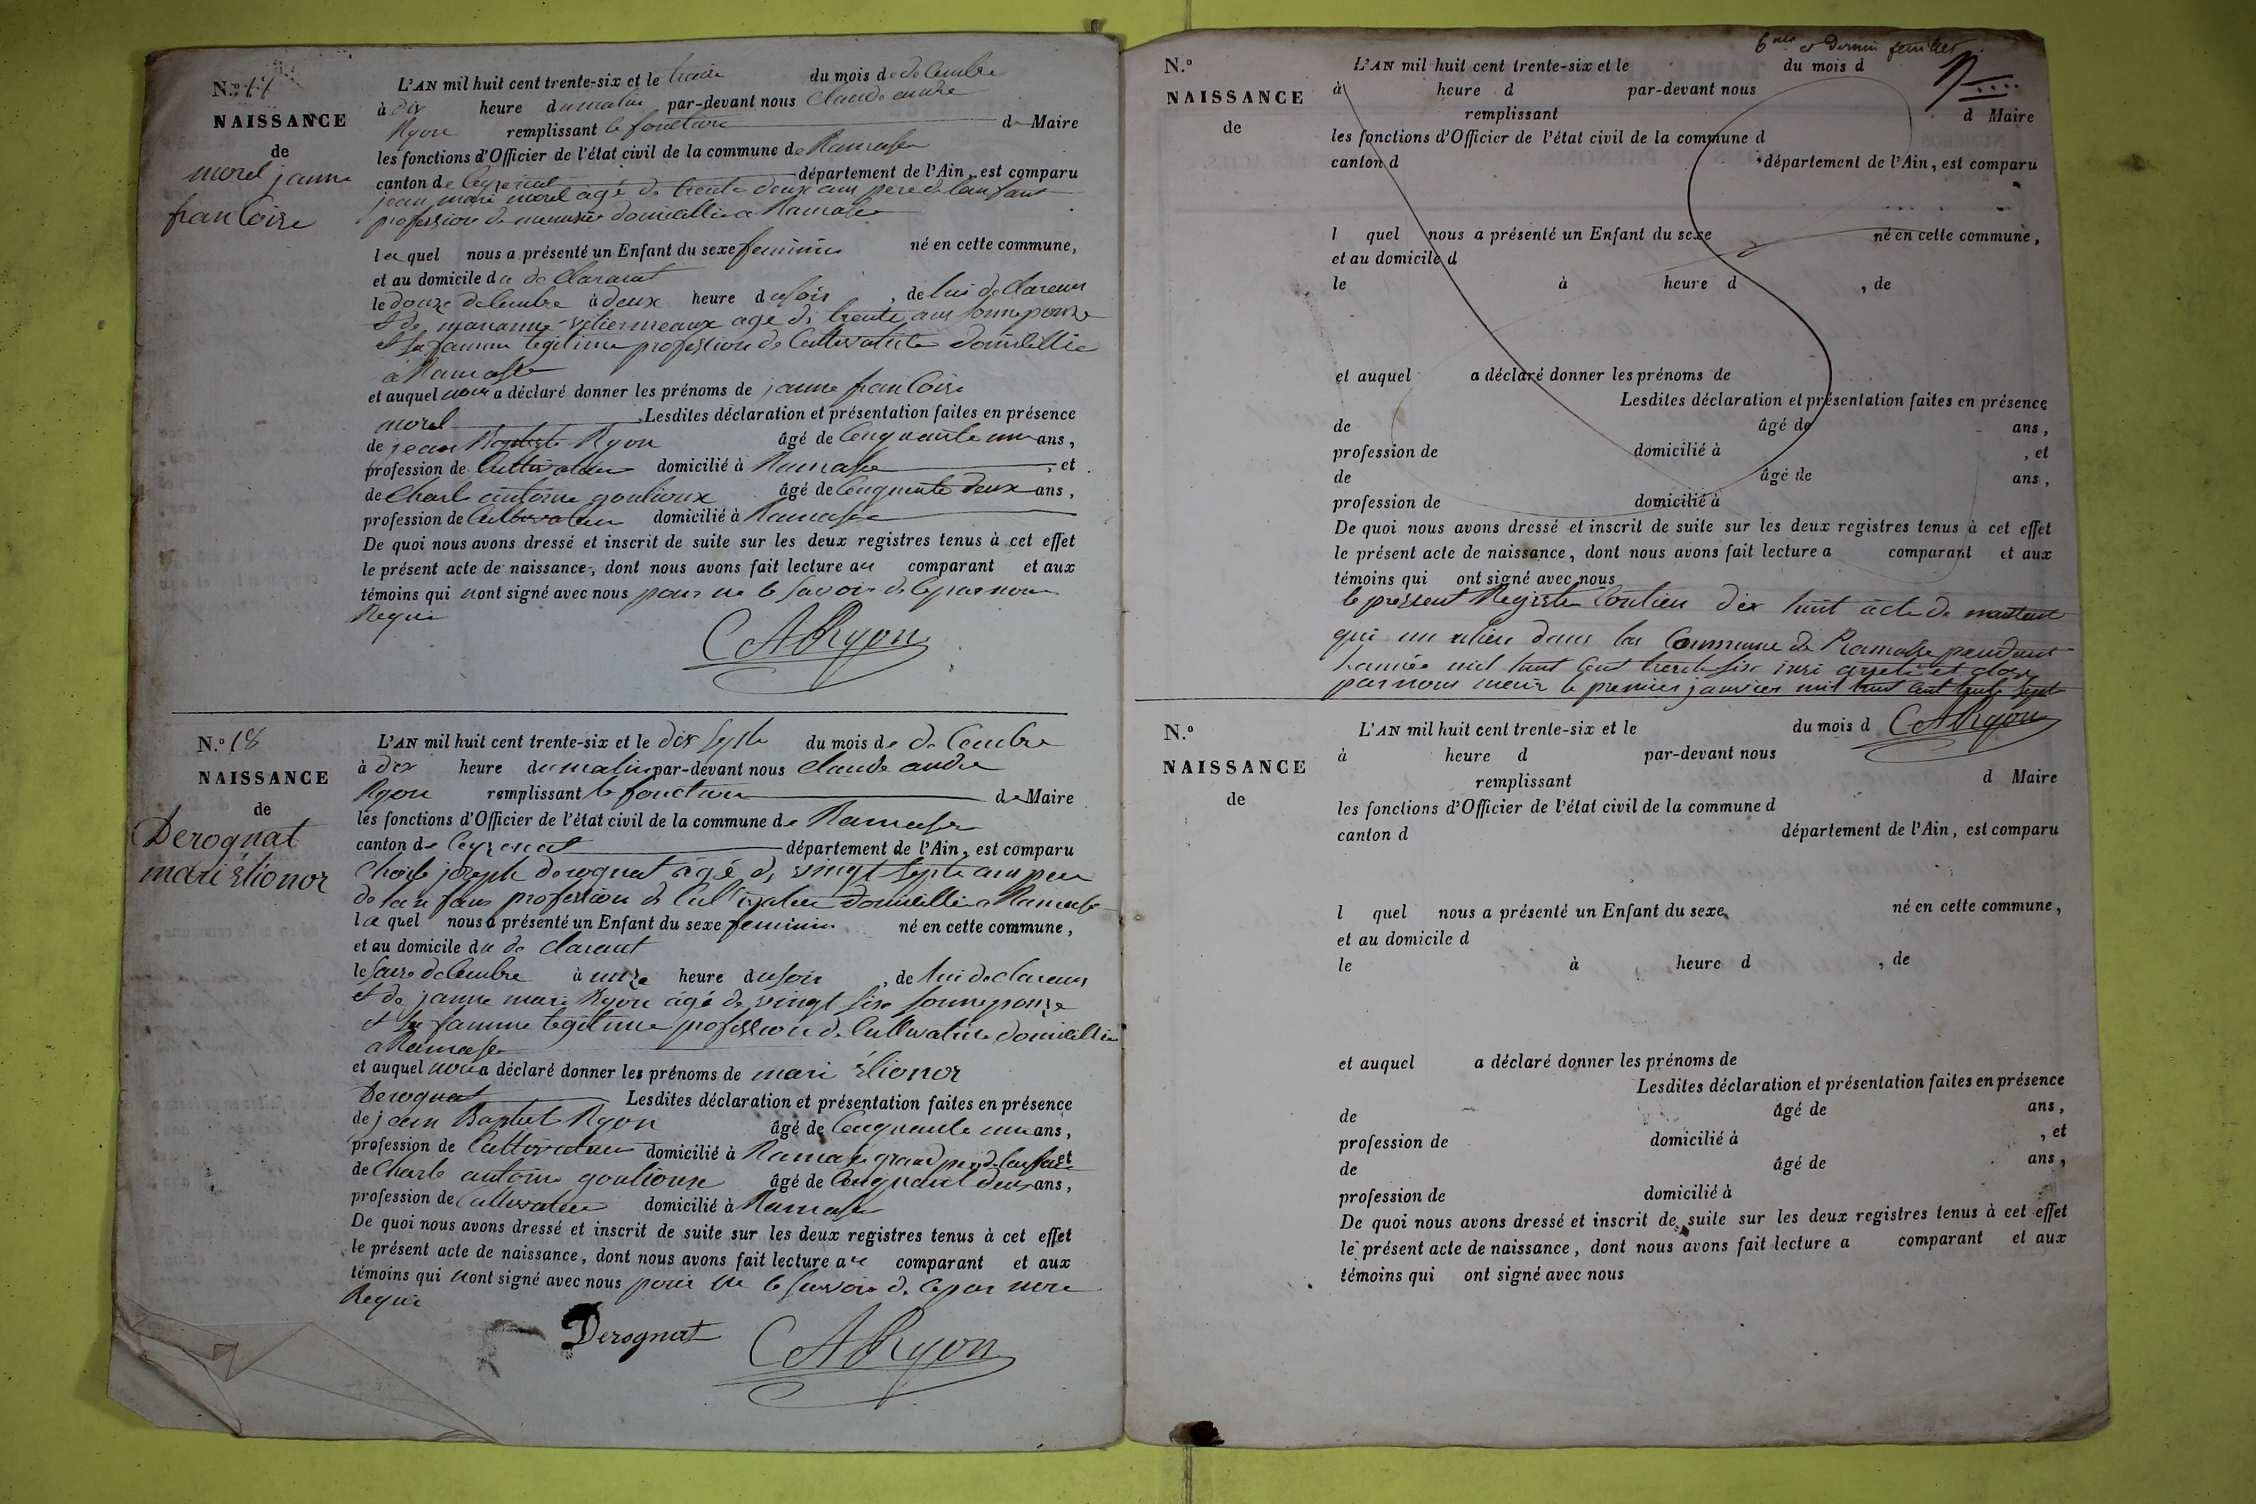 N.º 17
NAISSANCE
de
morel janne
francoise
L'AN mil huit cent trente-six et le treize du mois de decembre
à dix heure du matin par-devant nous Claude andre
Ryon remplissant le fonction de Maire
les fonctions d'Officier de l'état civil de la commune de Ramasse
canton de Ceyzeriat département de l'Ain, est comparu
jean marie morel agé de trente deux ans pere de lanfant
profession de menusier domicillié a Ramasse
le quel nous a présenté un Enfant du sexe feminin né en cette commune,
et au domicile du de clarant
le douze decembre à deux heure du soir, de lui de clareur
et de marianne agé de trente ans sonnepouse
et sa famme legitime profession de Cultivatrice domicillié
a Ramasse
et auquel nous a déclaré donner les prénoms de janne francoise
morel Lesdites déclaration et présentation faites en présence
de jean Baptiste Ryon âgé de Cenquante un ans,
profession de Cultivateur domicilié à Ramasse, et
de Charle antoine goulioux âgé de Cenquente deux ans,
profession de Cultivateur domicilié à Ramasse
De quoi nous avons dressé et inscrit de suite sur les deux registres tenus à cet effet
le présent acte de naissance, dont nous avons fait lecture au comparant et aux
témoins qui nont signé avec nous pour ne le savoir de ce par nous
Requi
CARyon
N.º 18
NAISSANCE
de
Derognat
mari Élionor
L'AN mil huit cent trente-six et le dix septe du mois de de Cembre
à dix heure du matin par-devant nous Claude andre
Ryon remplissant le fonction de Maire
les fonctions d'Officier de l'état civil de la commune de Ramasse
canton de Ceyzeriat département de l'Ain, est comparu
Charle joseph derognat âgé de vingt septe ans pere
de lan fans profession de Cultivateur domicillié a Ramasse
le quel nous a présenté un Enfant du sexe feminin né en cette commune,
et au domicile du de clarant
le saize decembre à onze heure du soir, de lui de clareur
et de janne mari Ryon âgé de vingt sise sonnepouse
et sa famme legitime profession de Cultivatrice domicillié
a Ramasse
et auquel nous a déclaré donner les prénoms de mari Élionor
Derognat Lesdites déclaration et présentation faites en présence
de jean Baptist Ryon âgé de Cenquante un ans,
profession de Cultivateur domicilié à Ramasse grand pere de lanfant et
de Charle antoine goulioux âgé de Cenquant deux ans,
profession de Cultivateur domicilié à Ramasse
De quoi nous avons dressé et inscrit de suite sur les deux registres tenus à cet effet
le présent acte de naissance, dont nous avons fait lecture au comparant et aux
témoins qui nont signé avec nous pour ne le savoir de ce par nous
Requi
Derognat CARyon
6me et dernier feuillet
N.º
NAISSANCE
de
L'AN mil huit cent trente-six et le du mois d
à heure d par-devant nous
remplissant d Maire
les fonctions d'Officier de l'état civil de la commune d
canton d département de l'Ain, est comparu
l quel nous a présenté un Enfant du sexe né en cette commune,
et au domicile d
le à heure d , de
et auquel a déclaré donner les prénoms de
Lesdites déclaration et présentation faites en présence
de âgé de ans,
profession de domicilié à , et
de âgé de ans,
profession de domicilié à
De quoi nous avons dressé et inscrit de suite sur les deux registres tenus à cet effet
le présent acte de naissance, dont nous avons fait lecture a comparant et aux
témoins qui ont signé avec nous
le present Registre Contien dix huit acte de
qui un elieu dans la Commune de Ramasse pendant
lannée mil huit Cent trente sise insi arreté et clos
par nous meire le premier janvier mil huit cent trente sept
CARyon
N.º
NAISSANCE
de
L'AN mil huit cent trente-six et le du mois d
à heure d par-devant nous
remplissant d Maire
les fonctions d'Officier de l'état civil de la commune d
canton d département de l'Ain, est comparu
l quel nous a présenté un Enfant du sexe né en cette commune,
et au domicile d
le à heure d , de
et auquel a déclaré donner les prénoms de
Lesdites déclaration et présentation faites en présence
de âgé de ans,
profession de domicilié à , et
de âgé de ans,
profession de domicilié à
De quoi nous avons dressé et inscrit de suite sur les deux registres tenus à cet effet
le présent acte de naissance, dont nous avons fait lecture a comparant et aux
témoins qui ont signé avec nous